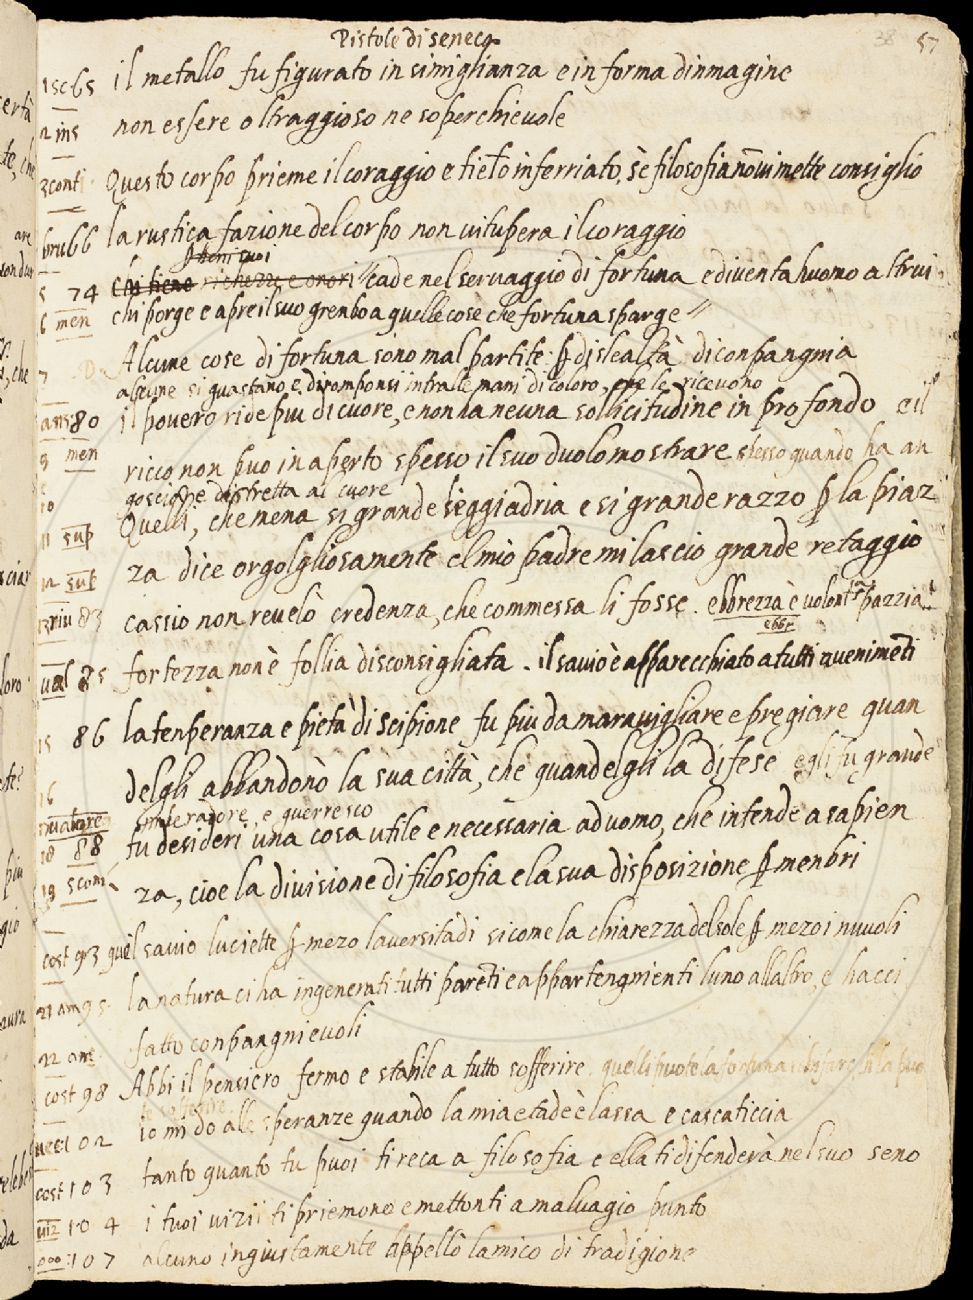 Pistole di seneca
38 57
1 sc 65 il metallo fu figurato in simiglianza e in forma dinmagine
2 ins non essere oltraggioso ne soperchievole
3 conti Questo corpo prieme il coraggio e tiello inferriato, sè filosofia nō vi mette consiglio
bru 66 la rustica fazione del corpo non vitupera il coraggio
i beni suoi
5 74 chi tiene richezze e onori // cade nel servaggio di fortuna e diventa huomo altrui
6 men chi porge e apre il suo grenbo a quelle cose che fortuna sparge //
7 Alcune cose di fortuna sono mal partite ꝑ dislealtà di conpangnia
alcune si guastano e diromponsi intra le mani di coloro, che le ricevono
ans 80 il povero ride piu di cuore, e non ha neuna sollicitudine in profondo e il
9 men ricco non puo in aperto spesso il suo duolo mostrare spesso quando ha an
10 goscie distretta al cuore
11 sup Quelli, che mena si grande leggiadria e si grande razzo ꝑ la piaz
12 sup za dice orgolgliosamente el mio padre mi lascio grande retaggio
13 riu 83 cassio non revelò credenza, che commessa li fosse. ebbrezza è volontaria pazzia
ebbr
val 85 fortezza non è follia disconsigliata. il savio è apparecchiato a tutti avenimēti
15 86 la tenperanza e pietà di Scipione fu piu da maravigliare e pregiare quan
16 delgli abbandonò la sua città, che quand elgli la difese egli fu grande
imperadore, e guerresco
18 88 tu desideri una cosa utile e necessaria ad uomo, che intende a sapien
19 scom za, cioe la divisione di filosofia e la sua disposizione ꝑ menbri
cost 93 quel savio luciette ꝑ mezo laversità di sicome la chiarezza del sole ꝑ mezo i nuvoli
21 am 95 la natura ci ha ingenerati tutti parēti e appartengnienti luno allaltro, e hacci
22 am fatto conpangnievoli
cost 98 Abbi il pensiero fermo e stabile a tutto sofferire. quelli puote la fortuna
102 io mi do alle speranze quando la mia etade è lassa e cascaticcia
cost 103 tanto quanto tu puoi ti reca a filosofia e ella ti difenderà nel suo seno
viz 104 i tuoi vizii ti priemono e mettonti a malvagio punto
107 alcuno ingiustamente appellò lamico di tradigione